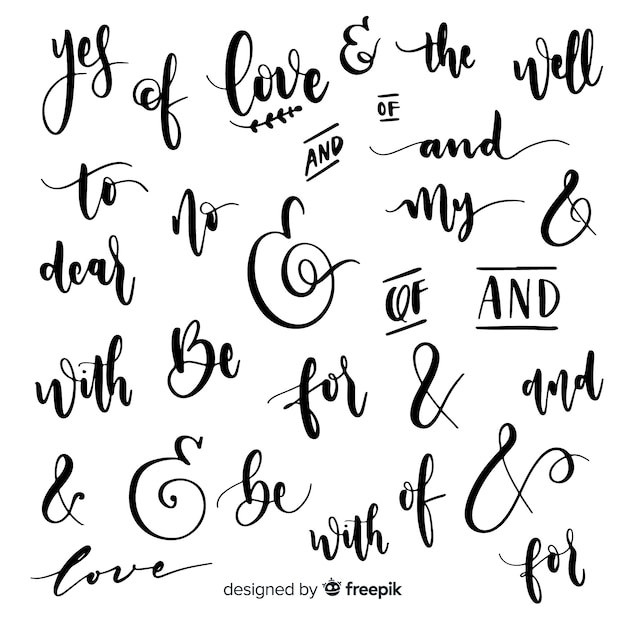 yes of love & the well
OF
AND
and
to no & my &
dear
OF AND
with Be for & and
& & be with of &
love for
designed by freepik